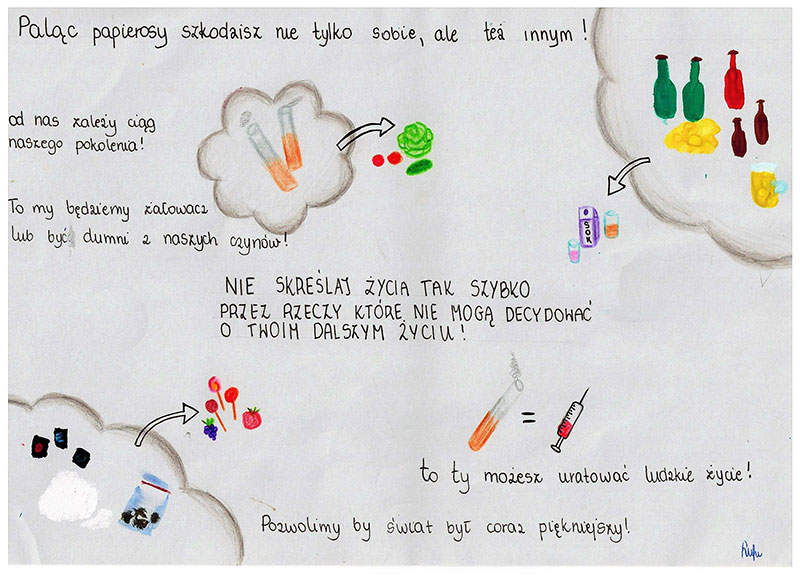 Paląc papierosy szkodzisz nie tylko sobie, ale też innym!
od nas zależy ciąg
naszego pokolenia!
To my będziemy żałować
lub być dumni z naszych czynów!
SOK
NIE SKREŚLAJ ŻYCIA TAK SZYBKO
PRZEZ RZECZY KTÓRE NIE MOGĄ DECYDOWAĆ
O TWOIM DALSZYM ŻYCIU!
=
to ty możesz uratować ludzkie życie!
Pozwolimy by świat był coraz piękniejszy!